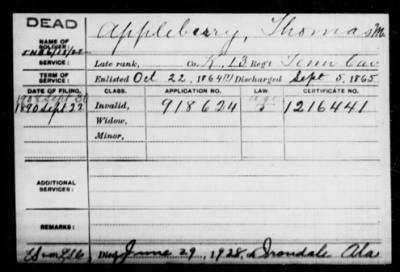 DEAD
Appleberry, Thomas M.
NAME OF
SOLDIER:
SERVICE:
Late rank, Co. K, 13 Reg't Tenn Cav
TERM OF
SERVICE:
Enlisted Oct 22, 1864 Discharged Sept 5, 1865
DATE OF FILING. CLASS. APPLICATION NO. LAW. CERTIFICATE NO.
1890 Sept 22 Invalid, 918624 1216441
Widow,
Minor,
ADDITIONAL
SERVICES:
REMARKS:
Died June 29, 1928, Irondale Ala